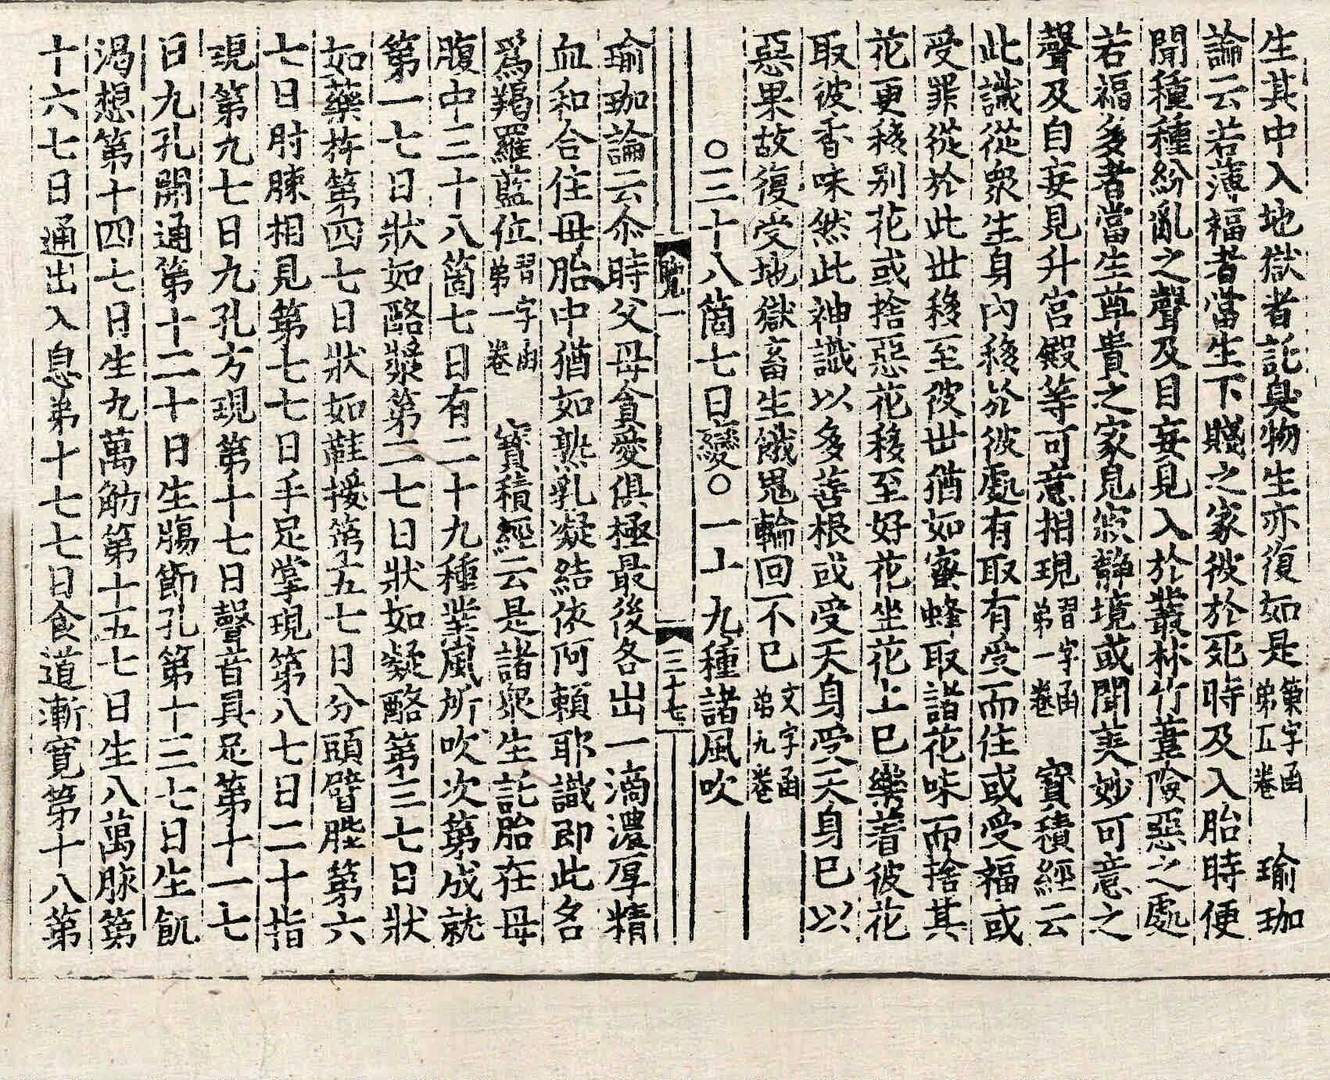 生其中入地獄者託臭物生亦復如是菓字函第五卷 瑜珈
論云若薄福者當生下賤之家彼於死時及入胎時便
聞種種紛亂之聲及目妄見入於叢林竹葦險惡之處
若福多者當生尊貴之家見寂靜境或聞美妙可意之
聲及自妄見升宮殿等可意相現習字函第一卷 寶積經云
此識從衆生身內移於彼處有取有受而住或受福或
受罪從於此世移至彼世猶如蜜蜂取諸花味而捨其
花更移别花或捨惡花移至好花坐花上已樂着彼花
取彼香味然此神識以多善根或受天身受天身已以
惡果故復受地獄畜生餓鬼輪回不已文字函第九卷
○三十八箇七日變○一十九種諸風吹
覽一 三十七
瑜珈論云尒時父母貪愛俱極最後各出一滴濃厚精
血和合住母胎中猶如熟乳凝結依阿頼耶識即此名
爲羯羅藍位習字函第一卷 寶積經云是諸衆生託胎在母
腹中三十八箇七日有二十九種業風所吹次第成就
第一七日狀如酪漿第二七日狀如凝酪第三七日狀
如藥杵第四七日狀如鞋援第五七日分頭臂䏶第六
七日肘膝相見第七七日手足掌現第八七日二十指
現第九七日九孔方現第十七日聲音具足第十一七
日九孔開通第十二十日生膓節孔第十三七日生飢
渴想第十四七日生九萬觔第十五七日生八萬脉第
十六七日通出入息第十七七日食道漸寬第十八第